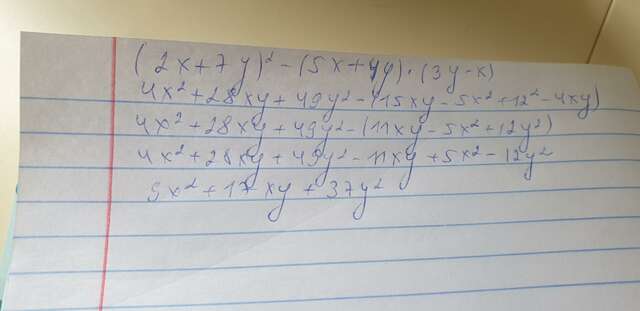 (2x+7y)²-(5x+4y)·(3y-x)
4x²+28xy+49y²-(15xy-5x²+12²-4xy)
4x²+28xy+49y²-(11xy-5x²+12y²)
4x²+28xy+49y²-11xy+5x²-12y²
9x²+17xy+37y²